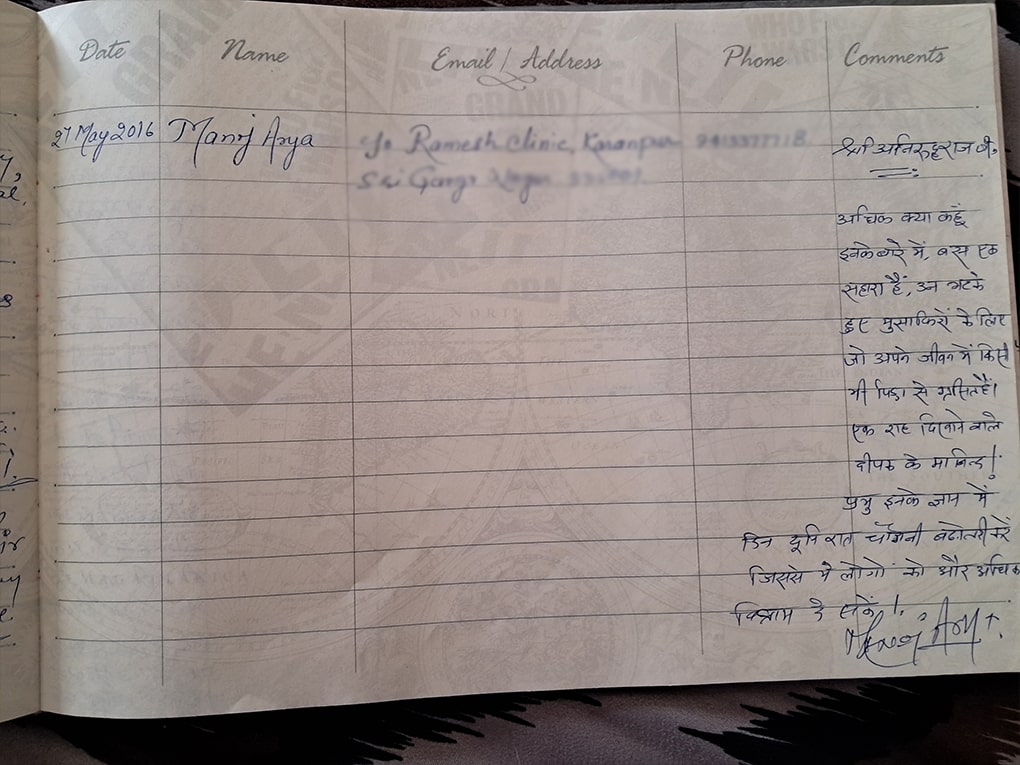 Date Name Email / Address Phone Comments
27 May 2016 Manoj Arya c/o Ramesh Clinic, Karanpur
Sri Ganga Nagar
श्री अनिरुद्धराज जी,
अधिक क्या कहूँ
इनके बारे में, बस एक
सहारा हैं, उन भटके
हुए मुसाफिरों के लिए
जो अपने जीवन में किसी
भी पिडा से ग्रसित हैं।
एक राह दिखाने वाले
दीपक के मानिन्द!
प्रभु इनके ज्ञान में
दिन दूनि रात चौगनी बढोत्तरी करें
जिससे ये लोगो को और अधिक
विश्राम दे सकें!
Manoj Arya